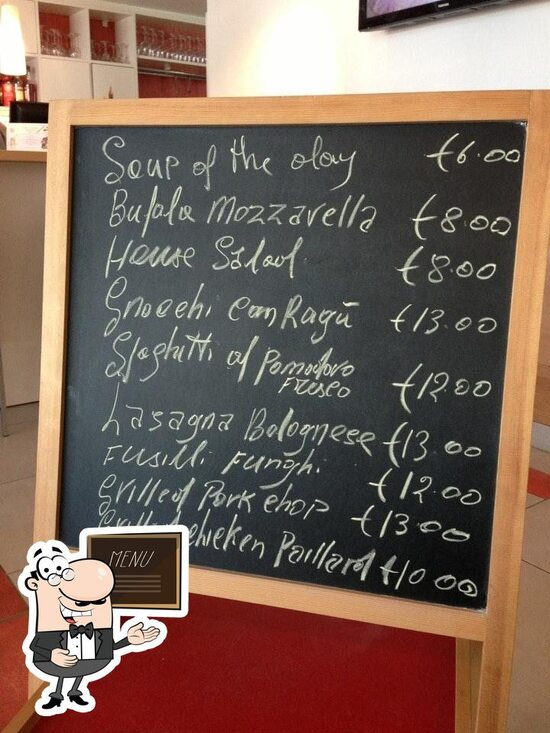 Soup of the day €6.00
Bufala Mozzarella €8.00
House Salad €8.00
Gnocchi con Ragū €13.00
Spaghitti al Pomodoro
Fresco €12.00
Lasagna Bolognese €13.00
Fusilli Funghi €12.00
Grilled Pork chop €13.00
Grilled chicken Paillard €10.00
MENU